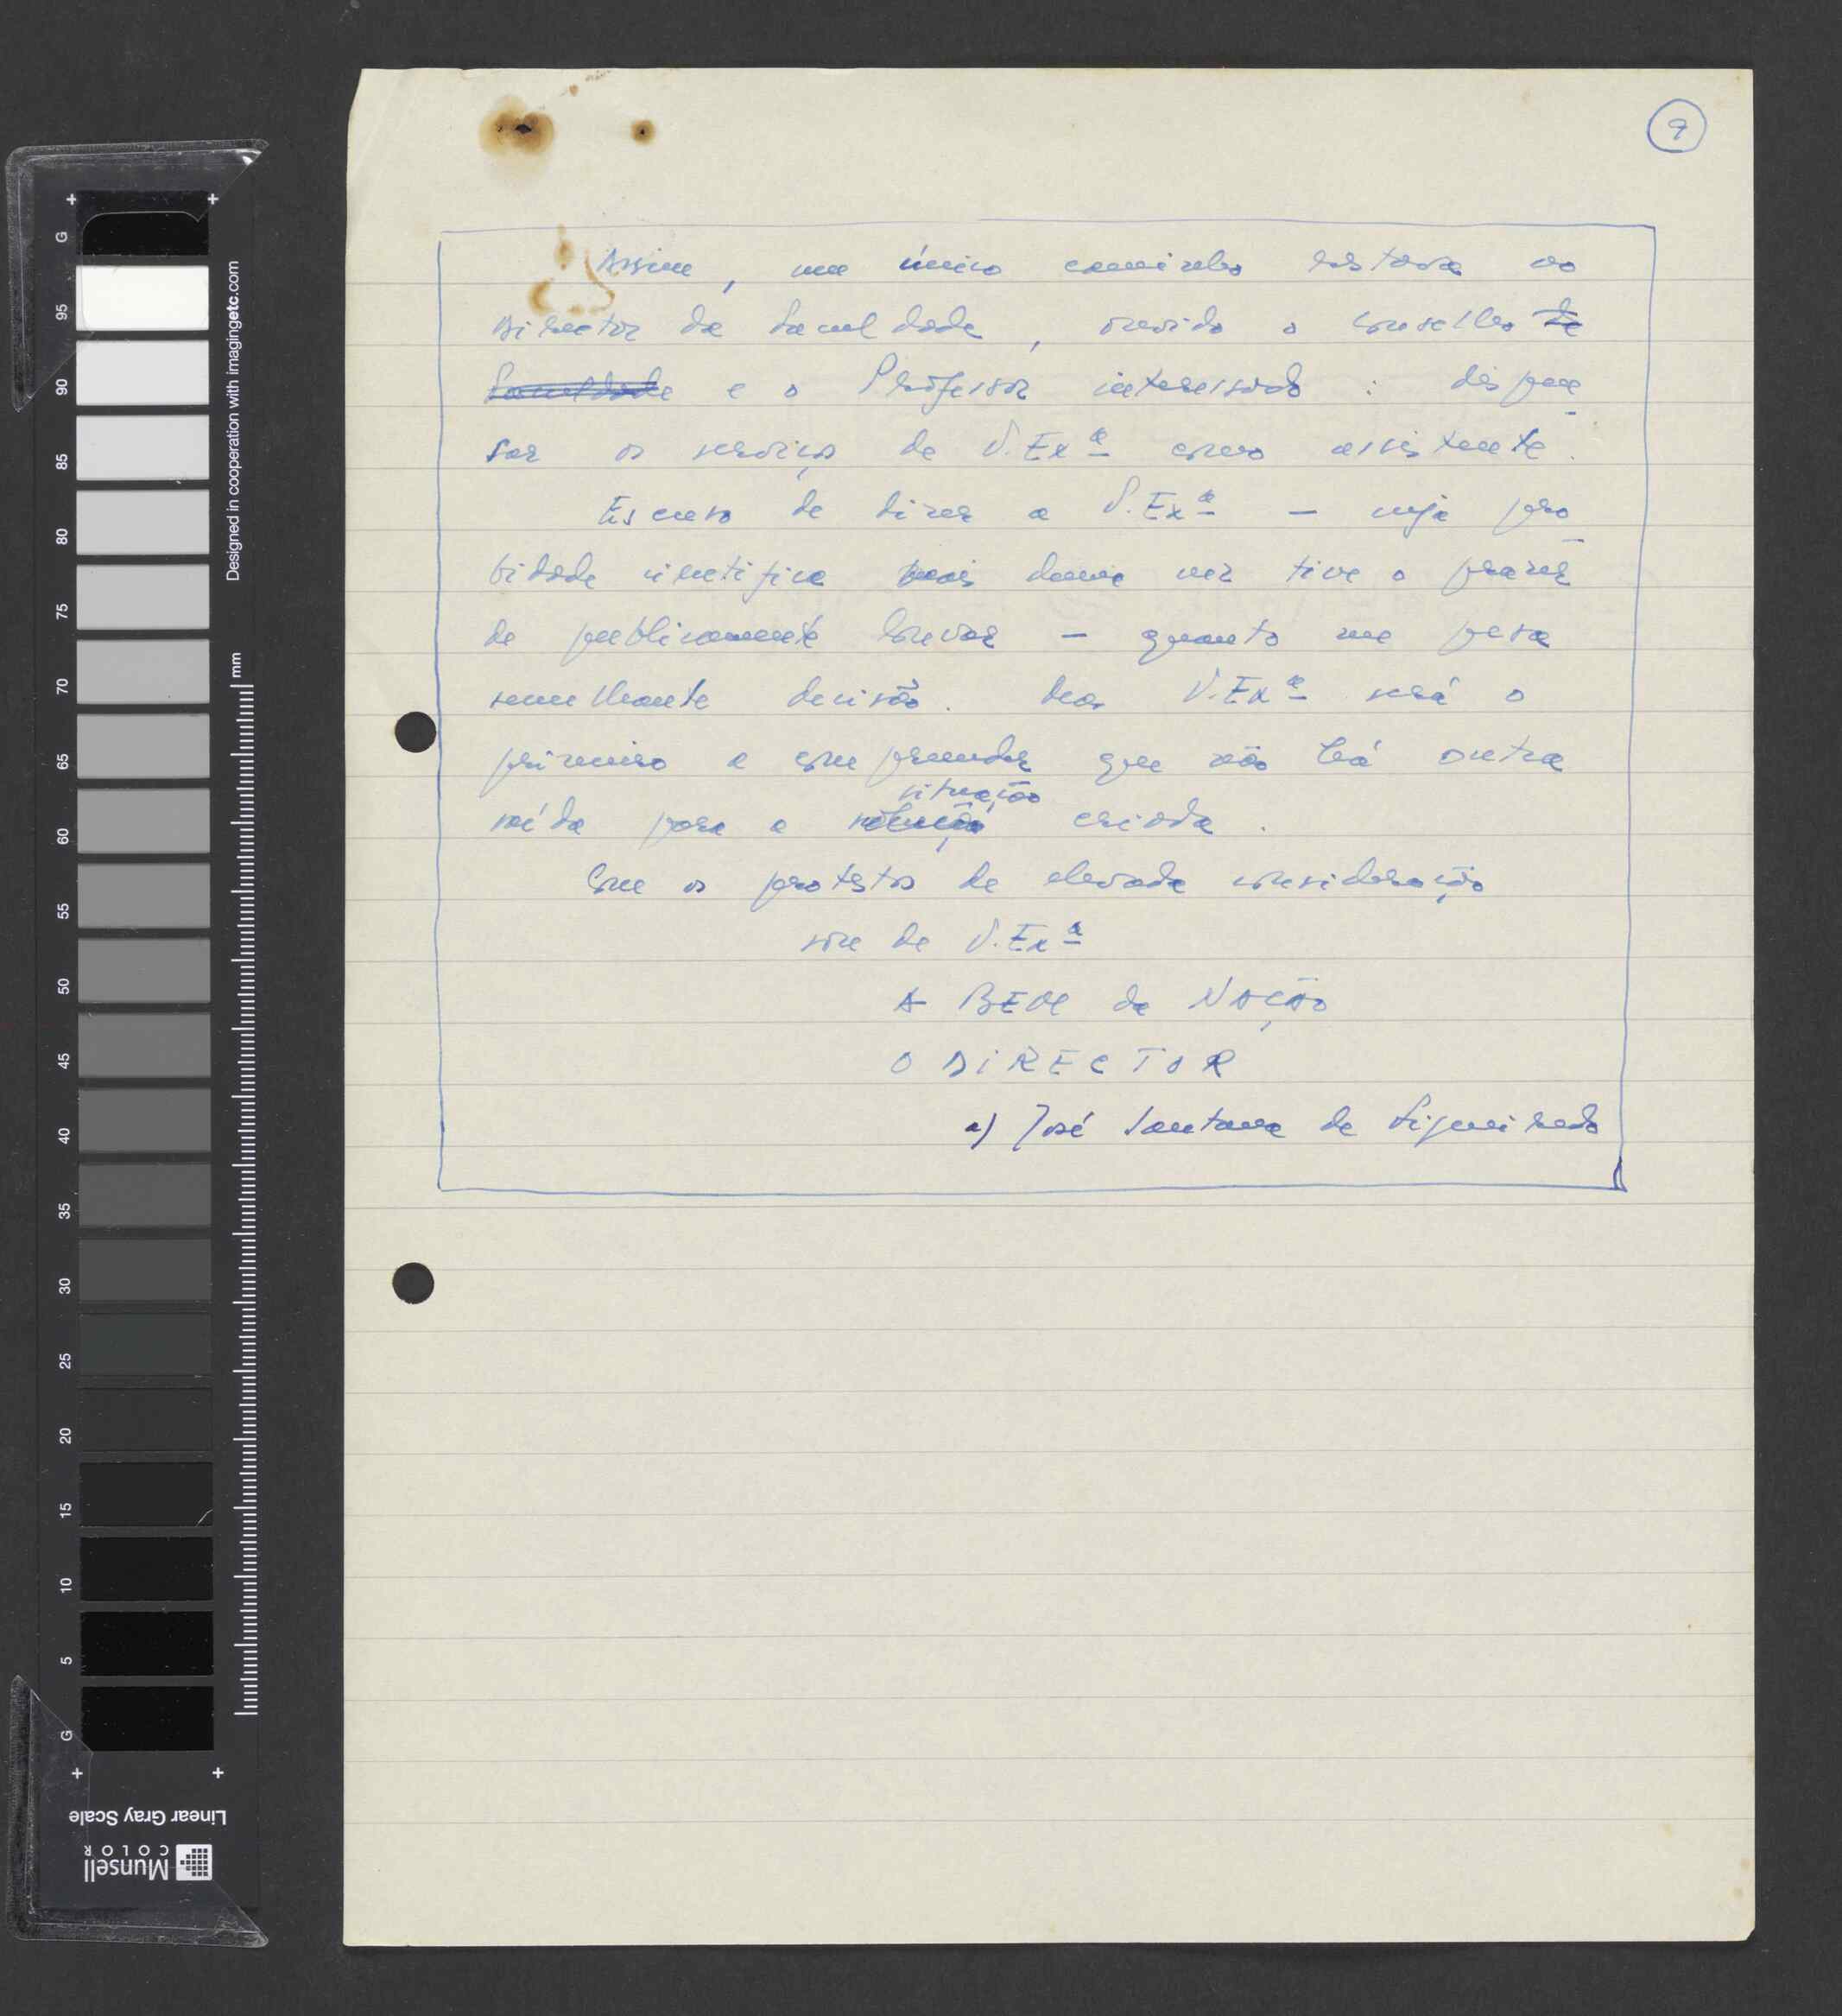 9
Assim, um único caminho restava ao
Director da Faculdade, ouvido o Conselho de
Faculdade e o Professor interessado : dispen
sar os serviços de V. Exª como assistente.
Escuso de dizer a V. Exª — cuja pro
bidade cientifica mais duma vez tive o prazer
de publicamente louvar — quanto me pesa
semelhante decisão. Mas V. Exª será o
primeiro a compreender que não há outra
situação
saída para a solução criada.
Com os protestos de elevada consideração
sou de V. Exª
A BEM da NAÇÃO
O DIRECTOR
a) José Santana de Figueiredo
+ +
G
95
90
85
80
75
70
65
60
55
50
45
40
35
30
25
20
15
10
5
G
+ +
Designed in cooperation with imagingetc.com
mm
Linear Gray Scale
Munsell
COLOR